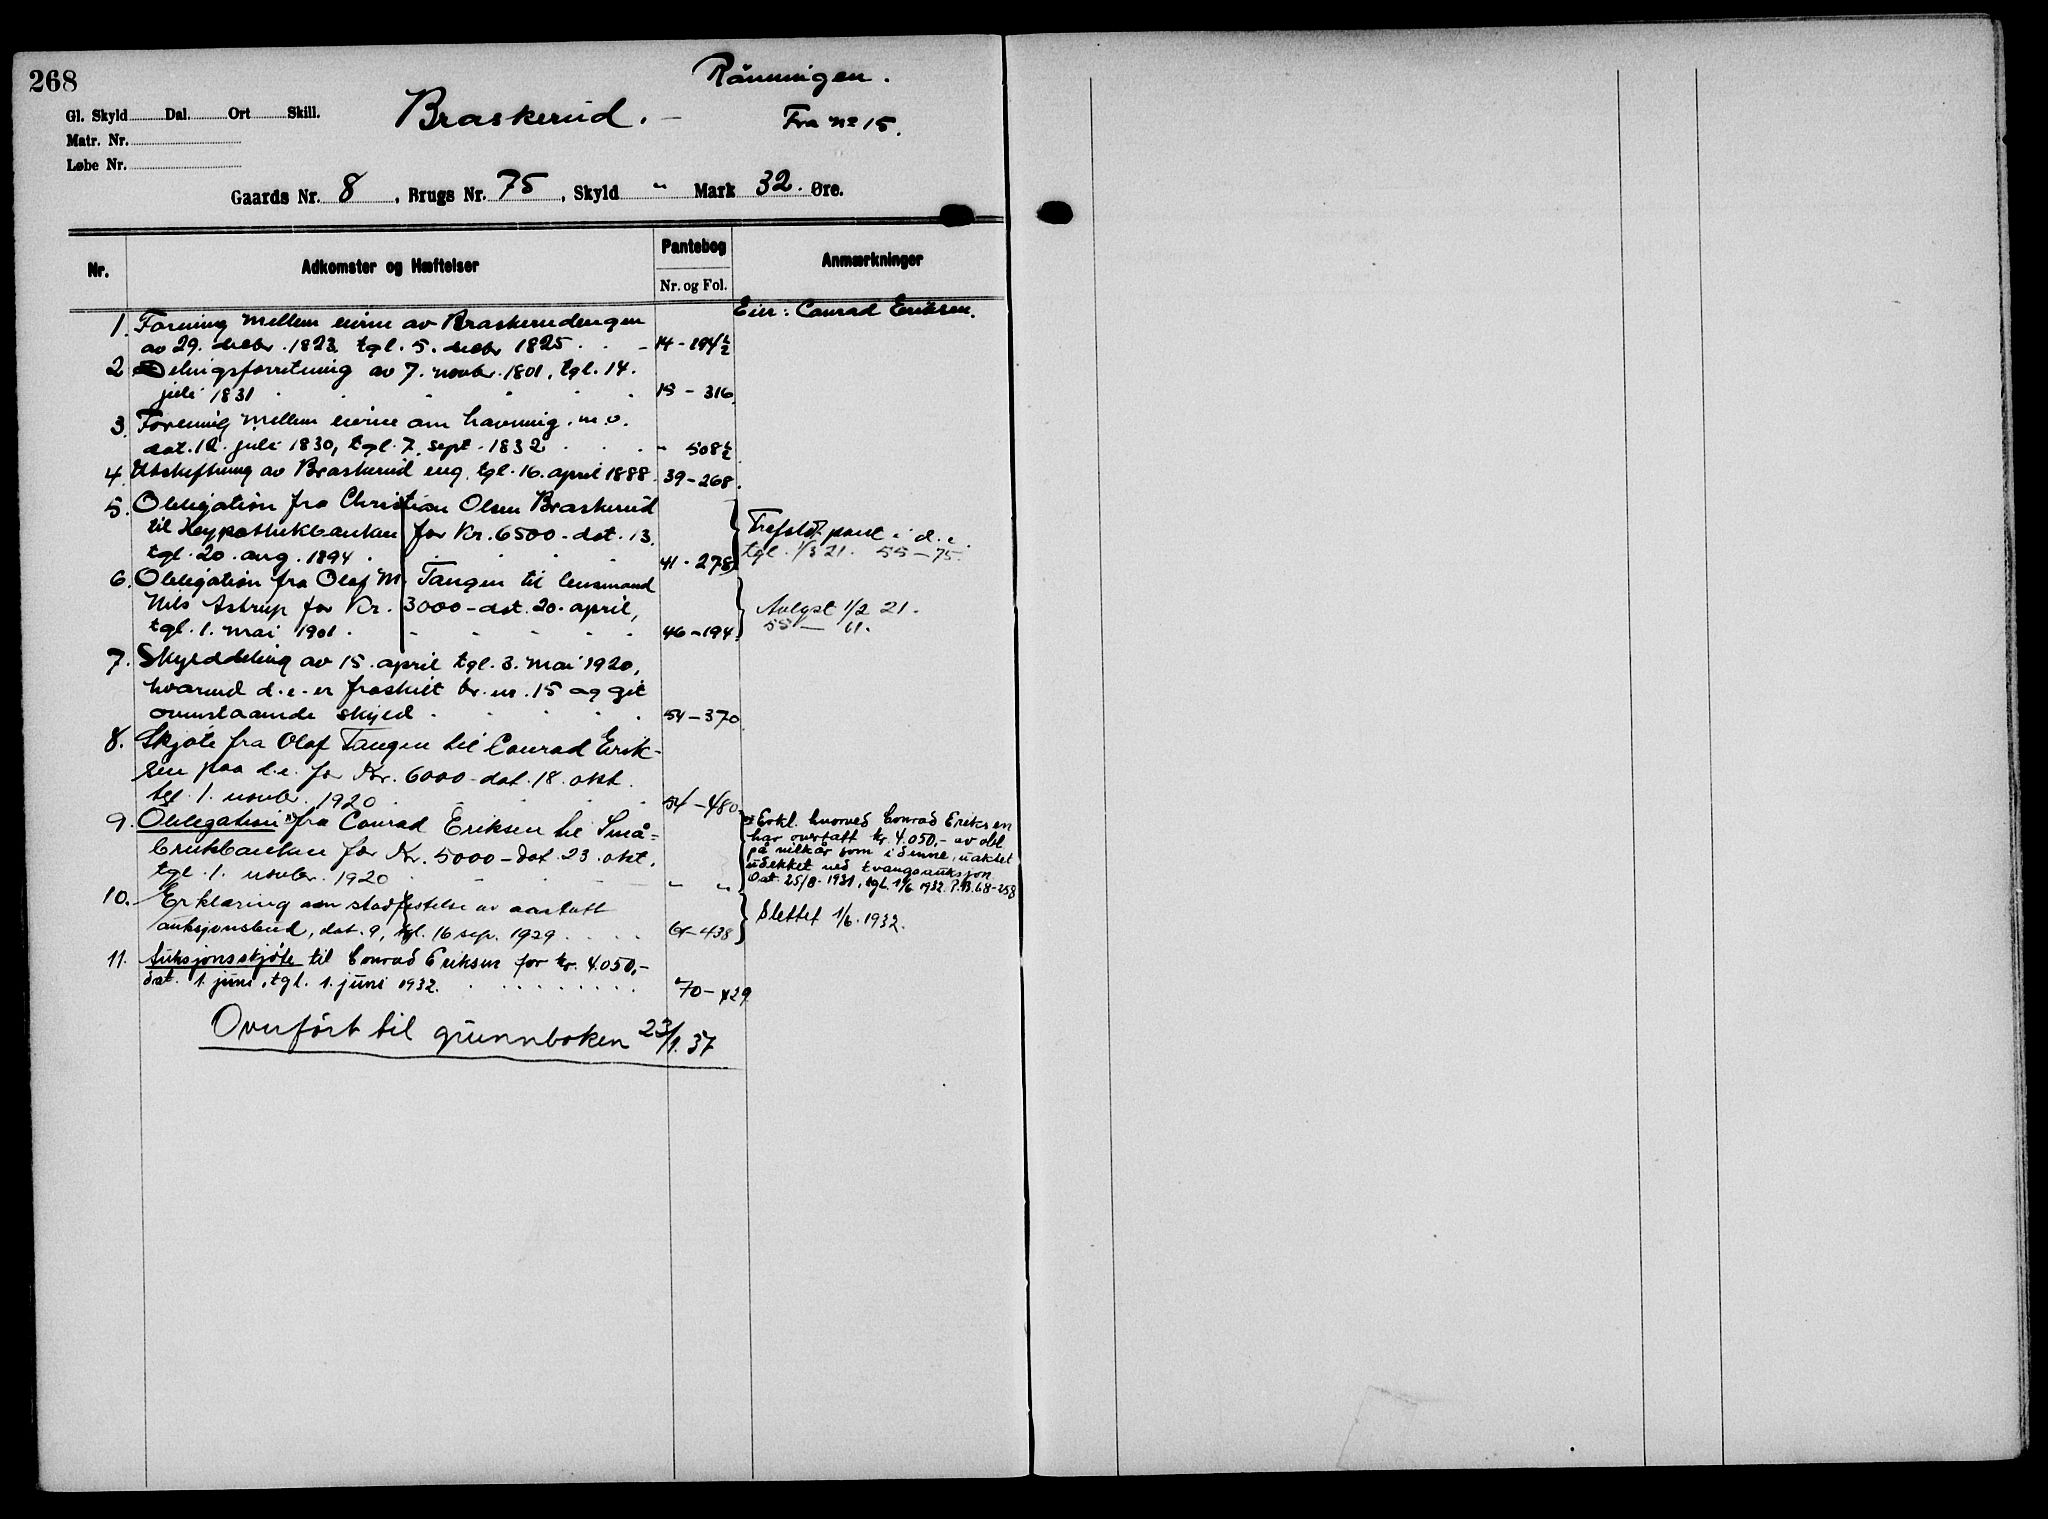 268
Rönningen.
Gl. Skyld Dal. Ort Skill.
Braskerud.
Fra nr 15.
Matr. Nr.
Løbe Nr.
Gaards Nr. 8, Brugs Nr. 75, Skyld " Mark 32. Øre.
Nr. Adkomster og Hæftelser Pantebog Nr. og Fol. Anmærkninger
Eier: Conrad Eriksen.
1. Forening mellem eierne av Braskerudengen
av 29. decbr. 1823 tgl. 5. decbr 1825. 14-194½
2 Delingsforretning av 7. novbr. 1801, tgl. 14.
juli 1831 15-316.
3. Forening mellem eierne om havning m.v.
dat. 12. juli 1830, tgl. 7. sept. 1832 " 508½
4. Utskiftning av Braskerud eng. tgl. 16. april 1888 39-268.
5. Obligation fra Christian Olsen Braskerud
til Hypothekbanken for Kr. 6500 - dat. 13.
tgl. 20. aug. 1894. 41-278
Frafaldt pant i d.e.
tgl. 1/3 21. 55-75.
6. Obligation fra Olaf M. Tangen til lensmand
Nils Astrup for Kr. 3000 - dat. 20. april,
tgl. 1. mai 1901. 46-194.
Avlyst 1/2 21.
55 — 11.
7. Skylddeling av 15. april tgl. 3. mai 1920,
hvorved d.e. er fraskilt br. nr. 15 og git
ovenstaaende skyld. 54-370
8. Skjøte fra Olaf Tangen til Conrad Erik-
sen paa d.e. for Kr. 6000 - dat. 18. okt.
tgl. 1. novbr. 1920 54-480
9. Obligation x) fra Conrad Eriksen til Små=
brukbanken for Kr. 5000 - dat. 23. okt.
tgl. 1. novbr. 1920 " "
x) Erkl. hvorved Conrad Eriksen
har overtatt kr. 4.050,- av obl.
på vilkår som i denne, uaktet
udekket ved tvangsauksjon.
Dat. 25/8. 1931, tgl. 1/6 1932. P.B. 68-258
10. Erklæring om stadfestelse av avslutt
auksjonsbud, dat. 9, tgl. 16 sep. 1929 61-438
Slettet 1/6. 1932.
11. Auksjonsskjøte til Conrad Eriksen for kr. 4.050,-
dat. 1. juni, tgl. 1. juni 1932. 70-429
Overført til grunnboken 23/1. 37